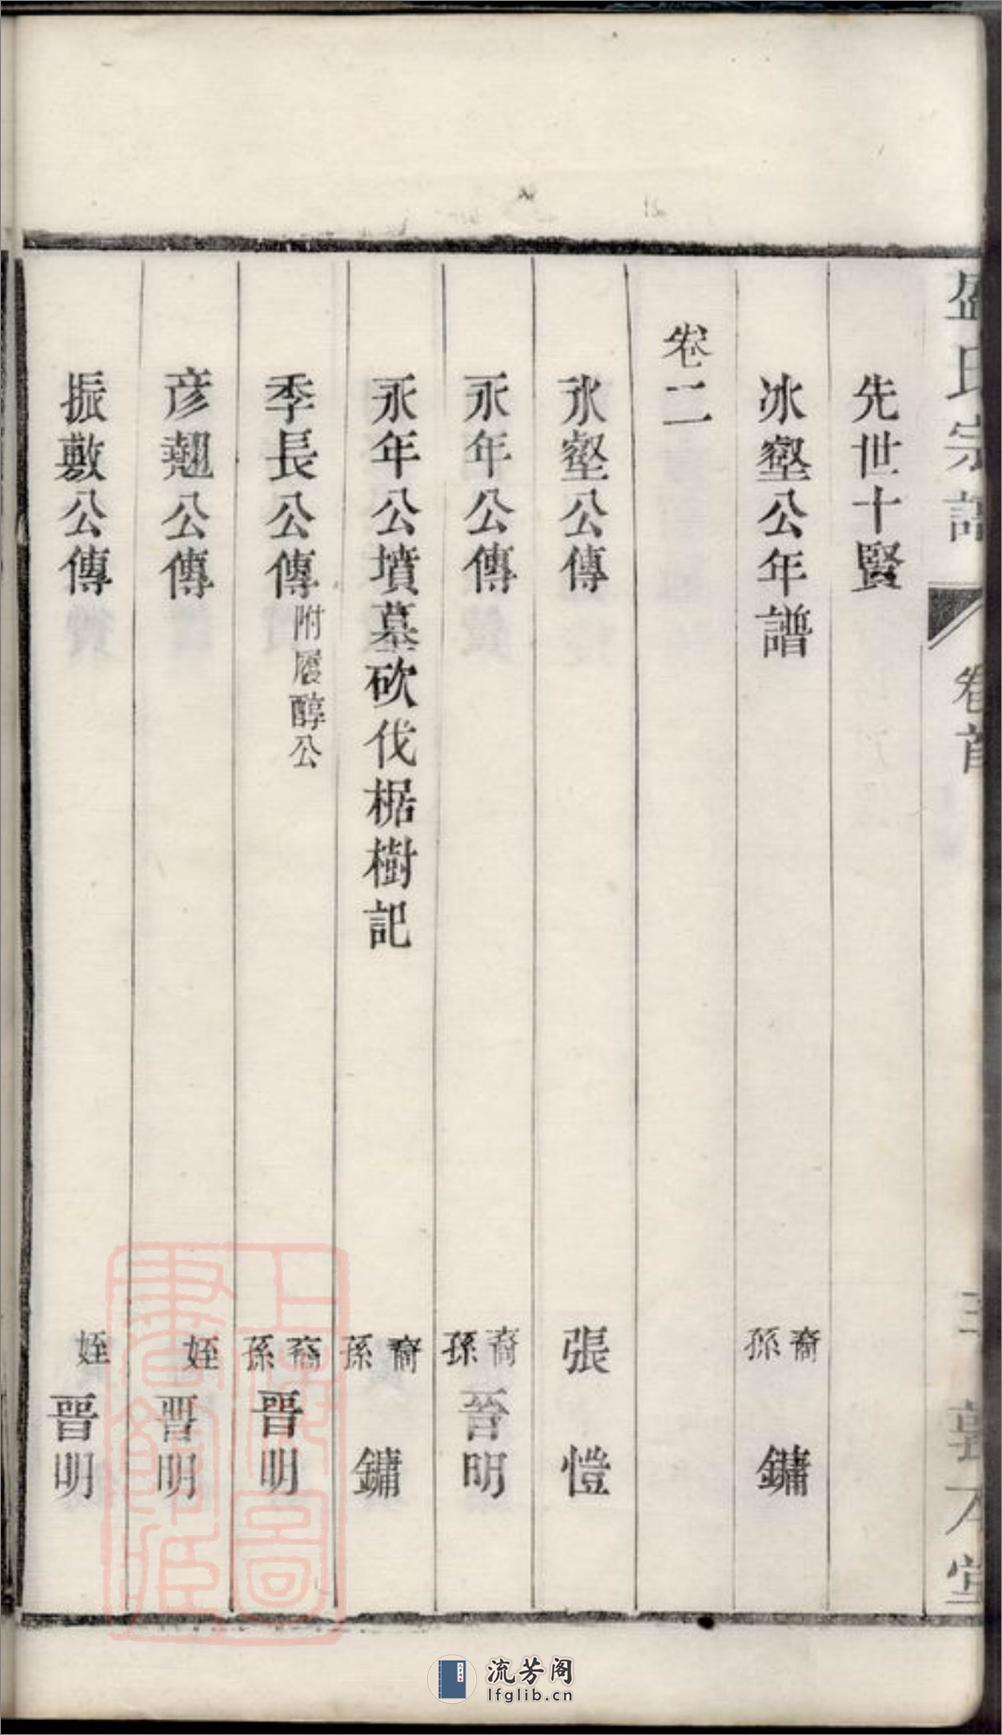 盛氏宗譜 卷首
先世十賢
冰壑公年譜 裔孫 鏞
卷二
冰壑公傳 張愷
永年公傳 裔孫 晉明
永年公墳墓砍伐椐樹記 裔孫 鏞
季長公傳 附履醇公 裔孫 晉明
彦翹公傳 姪 晉明
振敷公傳 姪 晉明
流芳阁
lfglib.cn